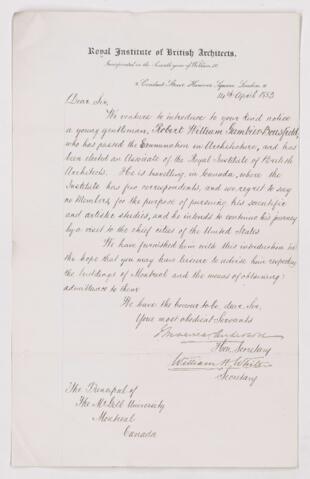 Royal Institute of British Architects.
Incorporated in the Seventh year of William IV.
9 Conduit Street Hanover Square London W
14th April 1883
Dear Sir,
We venture to introduce to your kind notice
a young gentleman, Robert William Gambier-Bousfield,
who has passed the Examination in Architecture, and has
been elected an Associate of the Royal Institute of British
Architects. He is travelling in Canada, where the
Institute has few correspondents, and we regret to say
no Members, for the purpose of pursuing his scientific
and artistic studies, and he intends to continue his journey
by a visit to the chief cities of the United States
We have furnished him with this introduction in
the hope that you may have leisure to advise him respecting
the buildings of Montreal and the means of obtaining
admittance to them
We have the honour to be, dear Sir,
Your most obedient Servants
Anderson
Hon. Secretary
William H. White
Secretary
The Principal of
The McGill University
Montreal
Canada